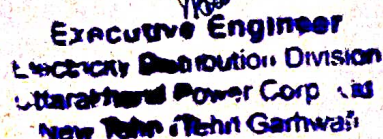 Executive Engineer
Electricity Distribution Division
Uttarakhand Power Corp. Ltd
New Tehri (Tehri Garhwal)